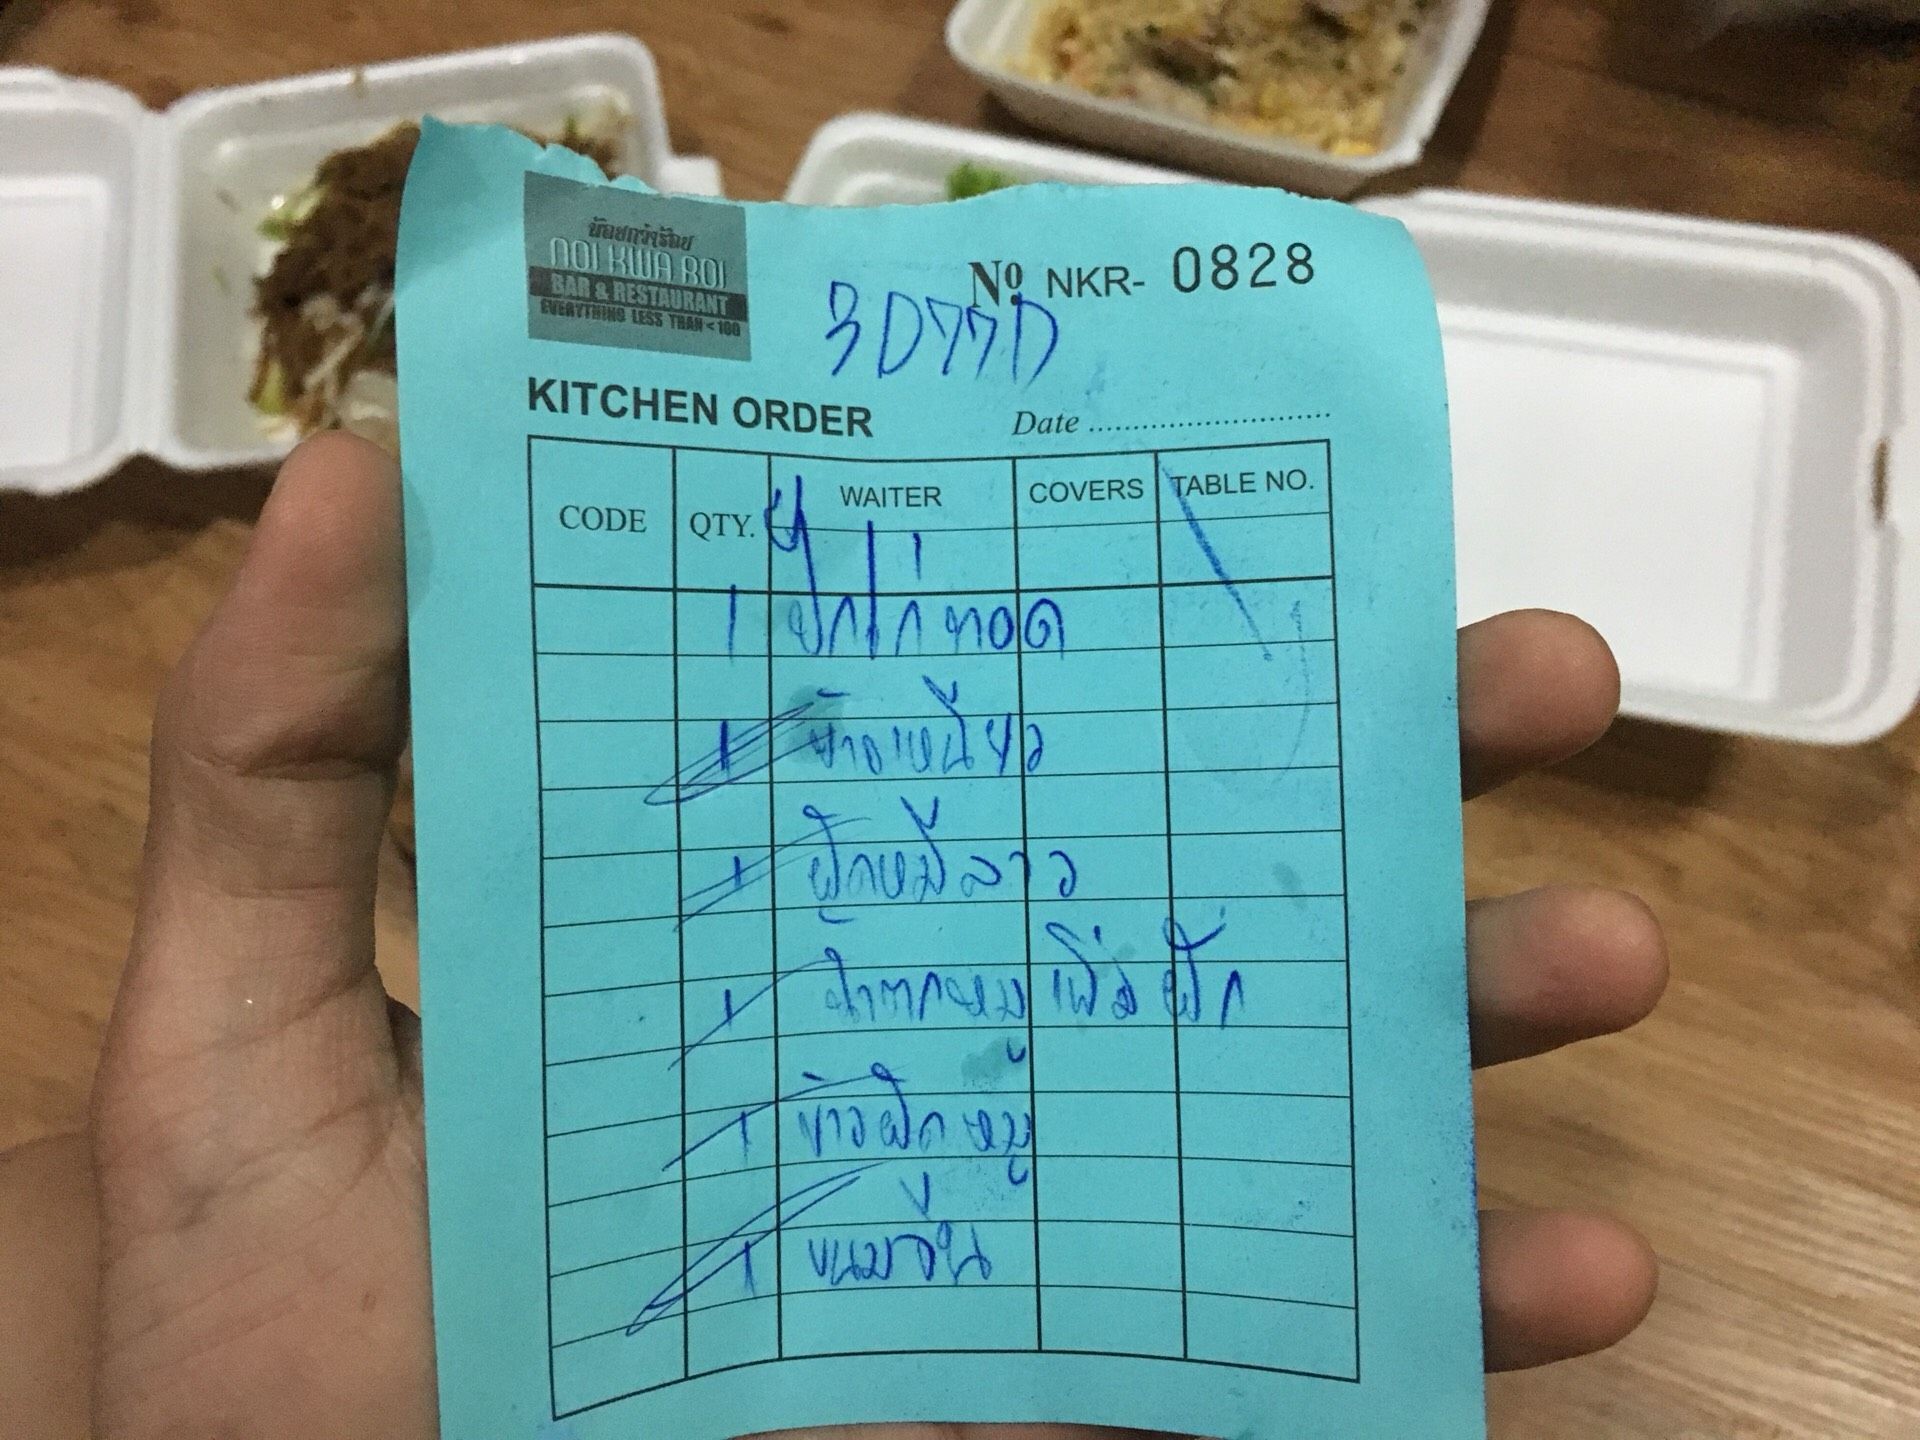 น้อยกว่าร้อย
NOI KWA ROI
BAR & RESTAURANT
EVERYTHING LESS THAN < 100
No NKR- 0828
KITCHEN ORDER
Date
CODE QTY. WAITER COVERS TABLE NO.
1 ปีกไก่ทอด
1 ข้าวเหนียว
1 ผัดหมี่ลาว
1 น้ำตกหมู เพิ่มผัก
1 ข้าวผัดหมู
1 ขนมจีน